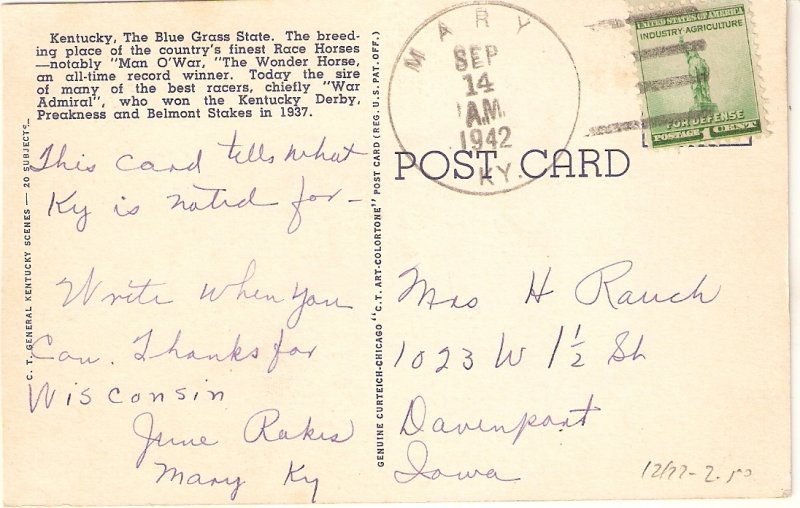 Kentucky, The Blue Grass State. The breed-
ing place of the country's finest Race Horses
—notably "Man O'War, "The Wonder Horse,
an all-time record winner. Today the sire
of many of the best racers, chiefly "War
Admiral", who won the Kentucky Derby,
Preakness and Belmont Stakes in 1937.
This card tells what
Ky is noted for-
Write when you
Can. Thanks for
Wisconsin
June Rakes
Mary Ky
C. T. GENERAL KENTUCKY SCENES — 20 SUBJECTS
GENUINE CURTEICH-CHICAGO "C. T. ART-COLORTONE" POST CARD (REG. U. S. PAT. OFF.)
MARY
SEP
14
A.M.
1942
KY.
UNITED STATES OF AMERICA
INDUSTRY·AGRICULTURE
FOR DEFENSE
POSTAGE 1 CENT
POST CARD
Mrs H Rauch
1023 W 1½ St
Davenport
Iowa
12/77-2.50